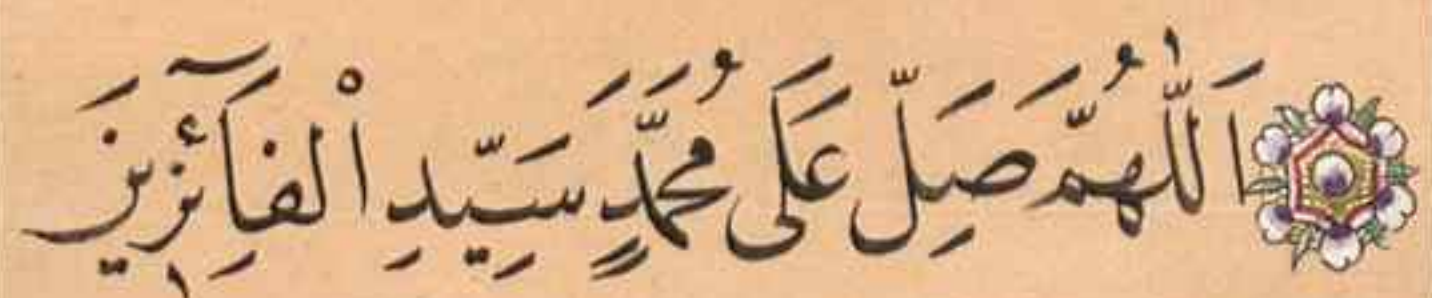 اَللّٰهُمَّ صَلِّ عَلَى مُحَمَّدٍ سَيِّدِ الْفَآئِزِينَ